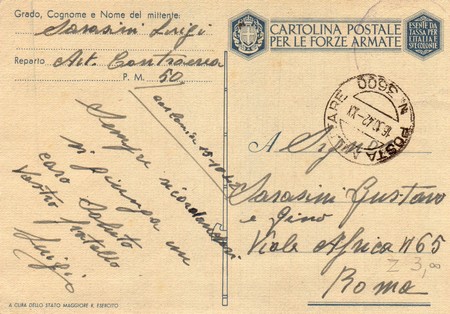 Grado, Cognome e Nome del mittente:
Sarasini Luigi
Reparto Art. Contraerea
P. M. 50
Sempre ricordandovi
vi giunga un
caro Saluto
Vostro fratello
Luigi
A CURA DELLO STATO MAGGIORE R. ESERCITO
CARTOLINA POSTALE
PER LE FORZE ARMATE
ESENTE DA
TASSA PER
L'ITALIA E
SUE COLONIE
POSTA MILITARE
N. 3600
A Sign
Sarasini Gustavo
e Gino
Viale Africa N 65
Roma
Z 3,00